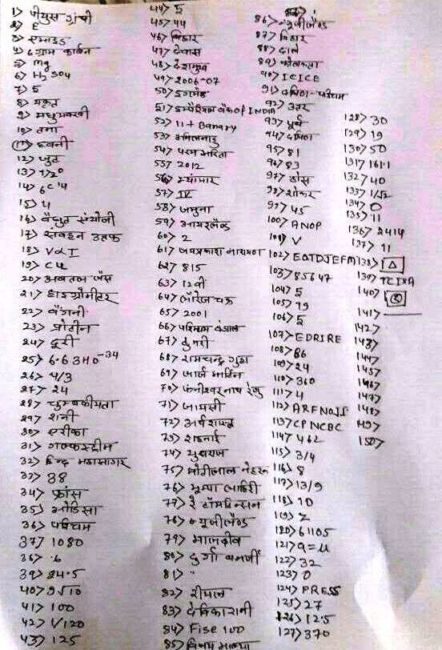 1> पीयुस ग्रंथी
2> E
3> एमाइड
4> 6 ग्राम कार्बन
5> mg
6> H2SO4
7> 5
8> यकृत
9> मधुमक्खी
10> तना
12> जुट
13> 1/20
14> 6C14
15> 4
16> वैधुत संयोजी
17> संवहन उष्मक
18> V∝I
19> Cu
20> अवतल लेंस
21> हाइग्रोमीटर
22> बैंगनी
23> प्रोटीन
24> दूरी
25> 6.63×10-34
26> 4/3
27> 24
28> चुम्बकीयता
29> शनी
30> एरीका
31> गल्फस्ट्रीम
32> हिन्द महासागर
33> 38
34> फ्रांस
35> ओडिसा
36> पश्चिम
37> 1080
38> .6
39> 24.5
40> 9√10
41> 100
42> 1/120
43> 125
44> 5
45> 44
46> बिहार
47> देवास
48> देशमुख
49> 2006-07
50> इंग्लैंड
51> इम्पीरियल बैंक of INDIA
52> 11 + Banary
53> तमिलनाडु
54> परम भारिता
55> 2012
56> म्यांमार
57> IV
58> जमुना
59> आयरलैंड
60> 2
61> जयप्रकाश नारायण
62> 815
63> 12वी
64> लॉरेंज चक्र
65> 2001
66> पश्चिम बंगाल
67> ठुमरी
68> रामचन्द्र गुहा
69> जार्ज मार्टिन
70> फणीश्वरनाथ रेणु
71> जायसी
72> अर्थशास्त्र
73> शहनाई
74> युवराज
75> मोतीलाल नेहरू
76> झुम्पा लाहिरी
77> रै टॉमलिन्सन
78> न्यूजीलैंड
79> मालदीव
80> दुर्गा बनर्जी
81> "
82> रीयाल
83> देविकारानी
84> Fise 100
85> विजय माल्या
86> न्यूजीलैंड
87> बिहार
88> दाल
89> कोलकता
90> ICICI
91> दक्षिण-पश्चिम
92> उत्तर
93> पूर्व
94> दक्षिण
95> 81
96> 83
97> ठोस
98> शोकर
97> 45
100> ANOP
101> V
102> EQTDJEFM
103> 85647
104> 5
105> 79
106> 5
107> EDRIRE
108> 86
109> 24
110> 360
111> 4
112> ARFNOIS
113> CPNCBC
114> 462
115> 3/4
116> 8
117> 13/9
118> 10
119> Z
120> 61105
121> q=u
122> 32
123> 0
124> PRESS
125> 27
126> 12.5
127> 370
128> 30
129> 19
130> 50
131> 16:11
132> 40
133> 1/52
134> 0
135> 11
136> 2414
137> 11
138> △
139> TCIXA
140>
141>
142>
143>
144>
145>
146>
147>
148>
149>
150>